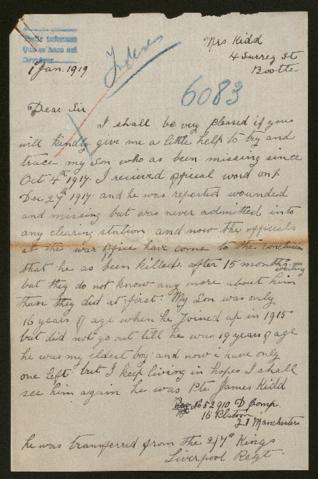 Mrs Kidd
4 Surrey St
Bootle
1 Jan. 1919
Index
6083
Dear Sir
I shall be very pleased if you
will kindly give me a little help to try and
trace my Son who as been missing since
Oct 4th 1917. I recieved offical word on
Dec 27th 1917 and he was reported wounded
and missing but was never admitted into
any clearing station and now the officials
at the war office have come to the conclusion
that he as been killed after 15 months waiting
but they do not know any more about him
than they did at first. My Son was only
16 years of age when he Joined up in 1915
but did not go out till he was 19 years of age
he was my eldest boy and now i have only
one left but I keep living in hopes I shall
see him again he was Pte James Kidd
No 52910 D Comp.
16 Platoon
21 Manchesters
he was transferred from the 2/7th Kings
Liverpool Regt.